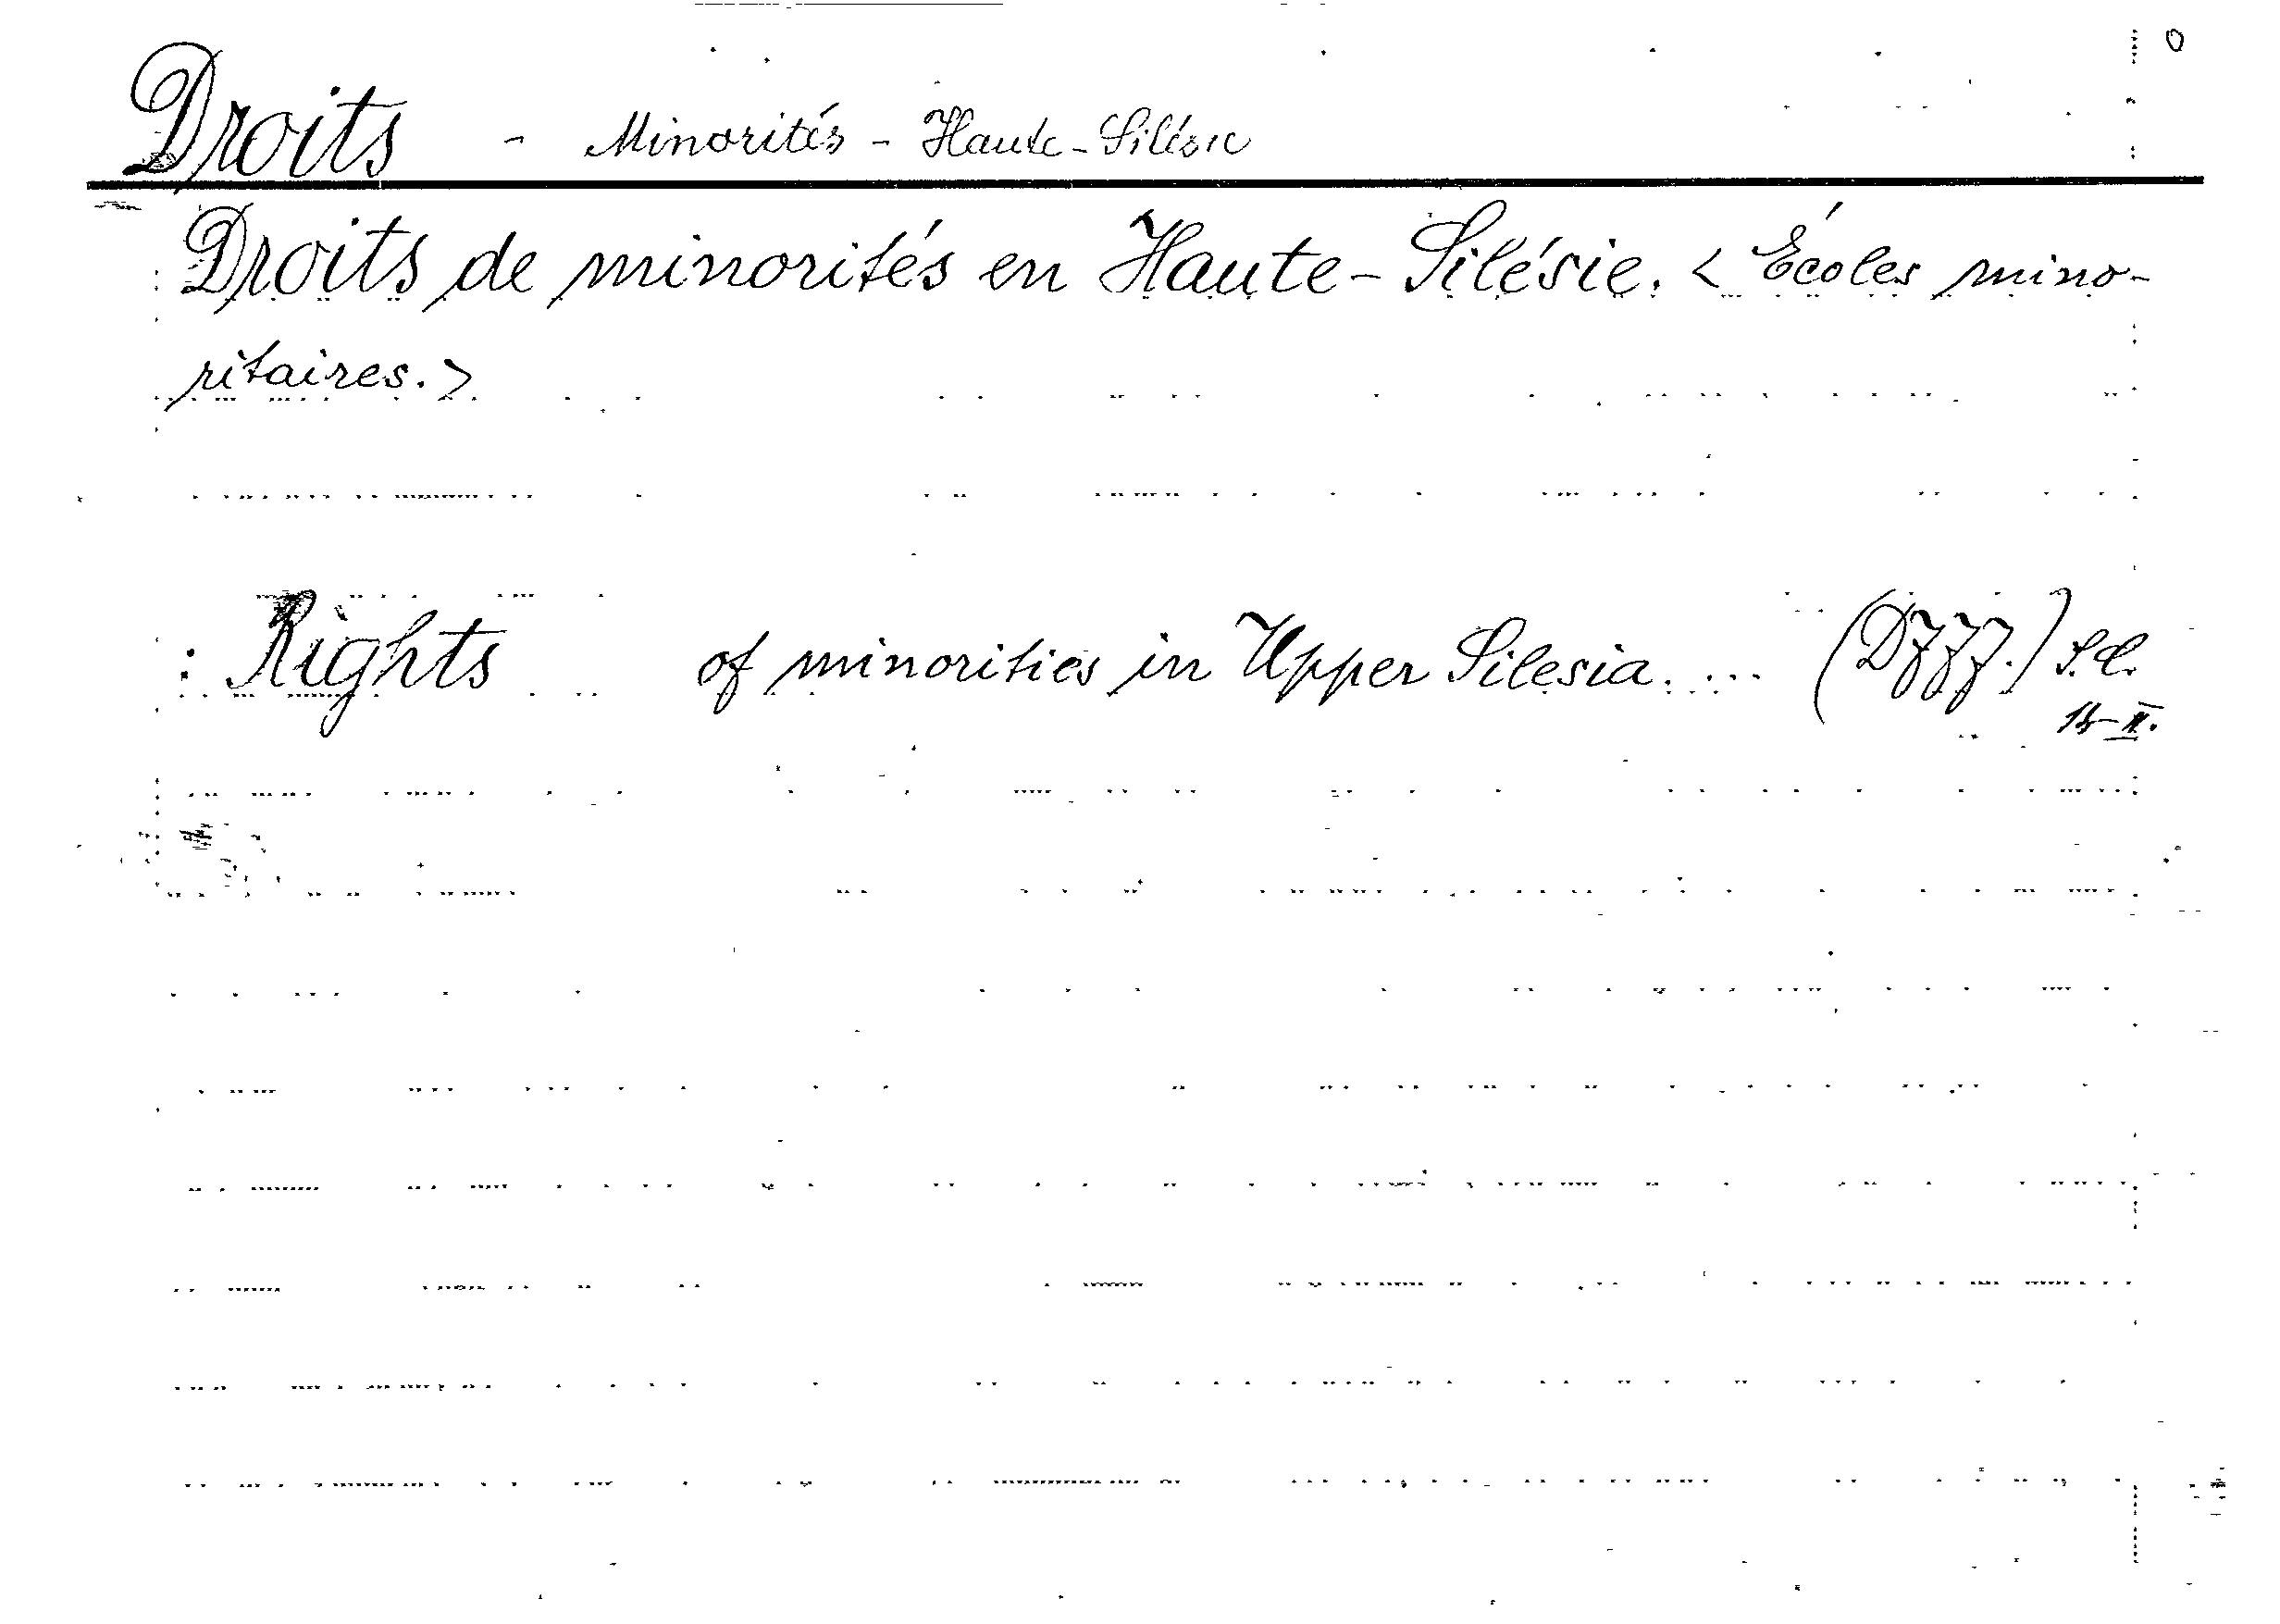 Droits - Minorités - Haute-Silésie
Droits de minorités en Haute-Silésie. < Écoles mino-
ritaires. >
: Rights of minorities in Upper Silesia. ...